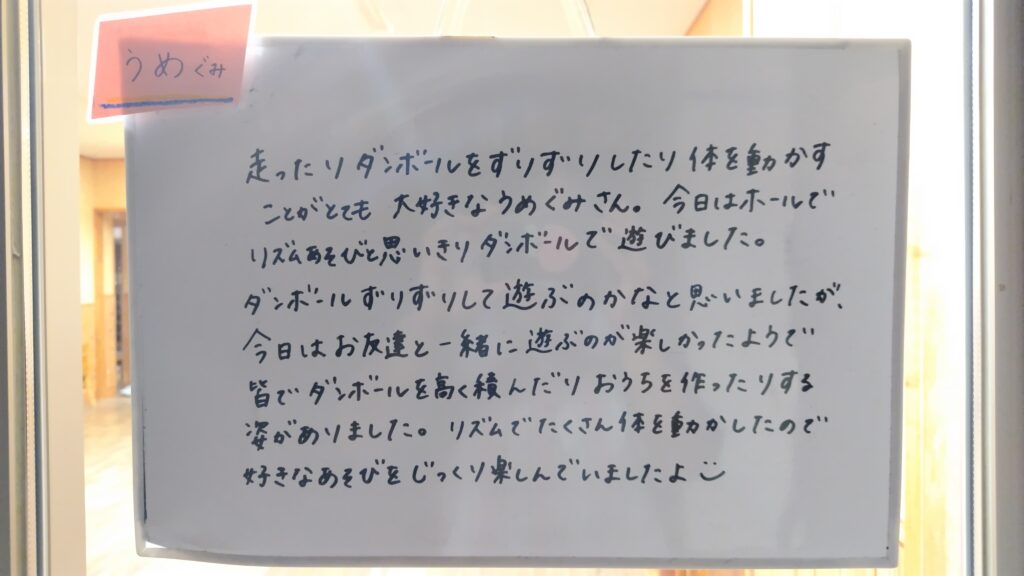 うめぐみ
走ったりダンボールをずりずりしたり体を動かす
ことがとても大好きなうめぐみさん。今日はホールで
リズムあそびと思いきりダンボールで遊びました。
ダンボールずりずりして遊ぶのかなと思いましたが、
今日はお友達と一緒に遊ぶのが楽しかったようで
皆でダンボールを高く積んだりおうちを作ったりする
姿がありました。リズムでたくさん体を動かしたので
好きなあそびをじっくり楽しんでいましたよ